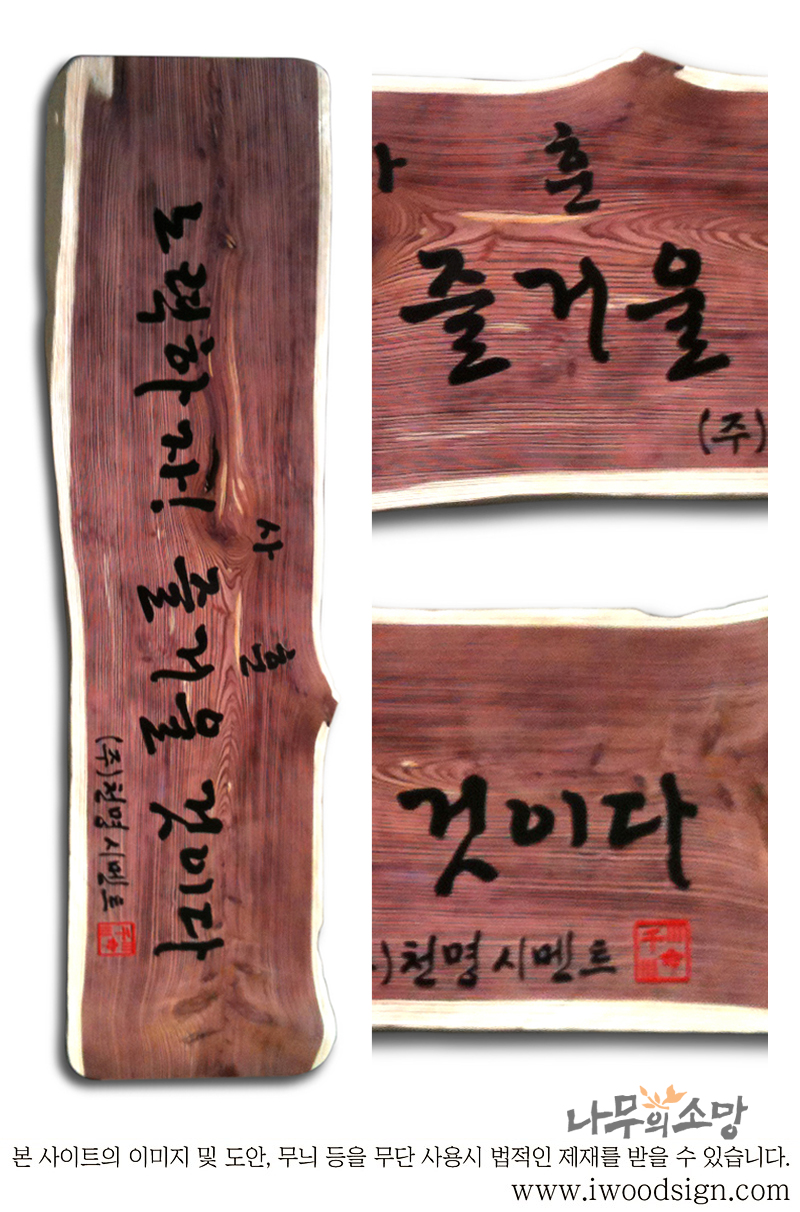 사 훈
노력하자! 즐거울 것이다
(주)천명시멘트
사 훈
즐거울
(주)
것이다
)천명시멘트
나무의소망
본 사이트의 이미지 및 도안, 무늬 등을 무단 사용시 법적인 제재를 받을 수 있습니다.
www.iwoodsign.com